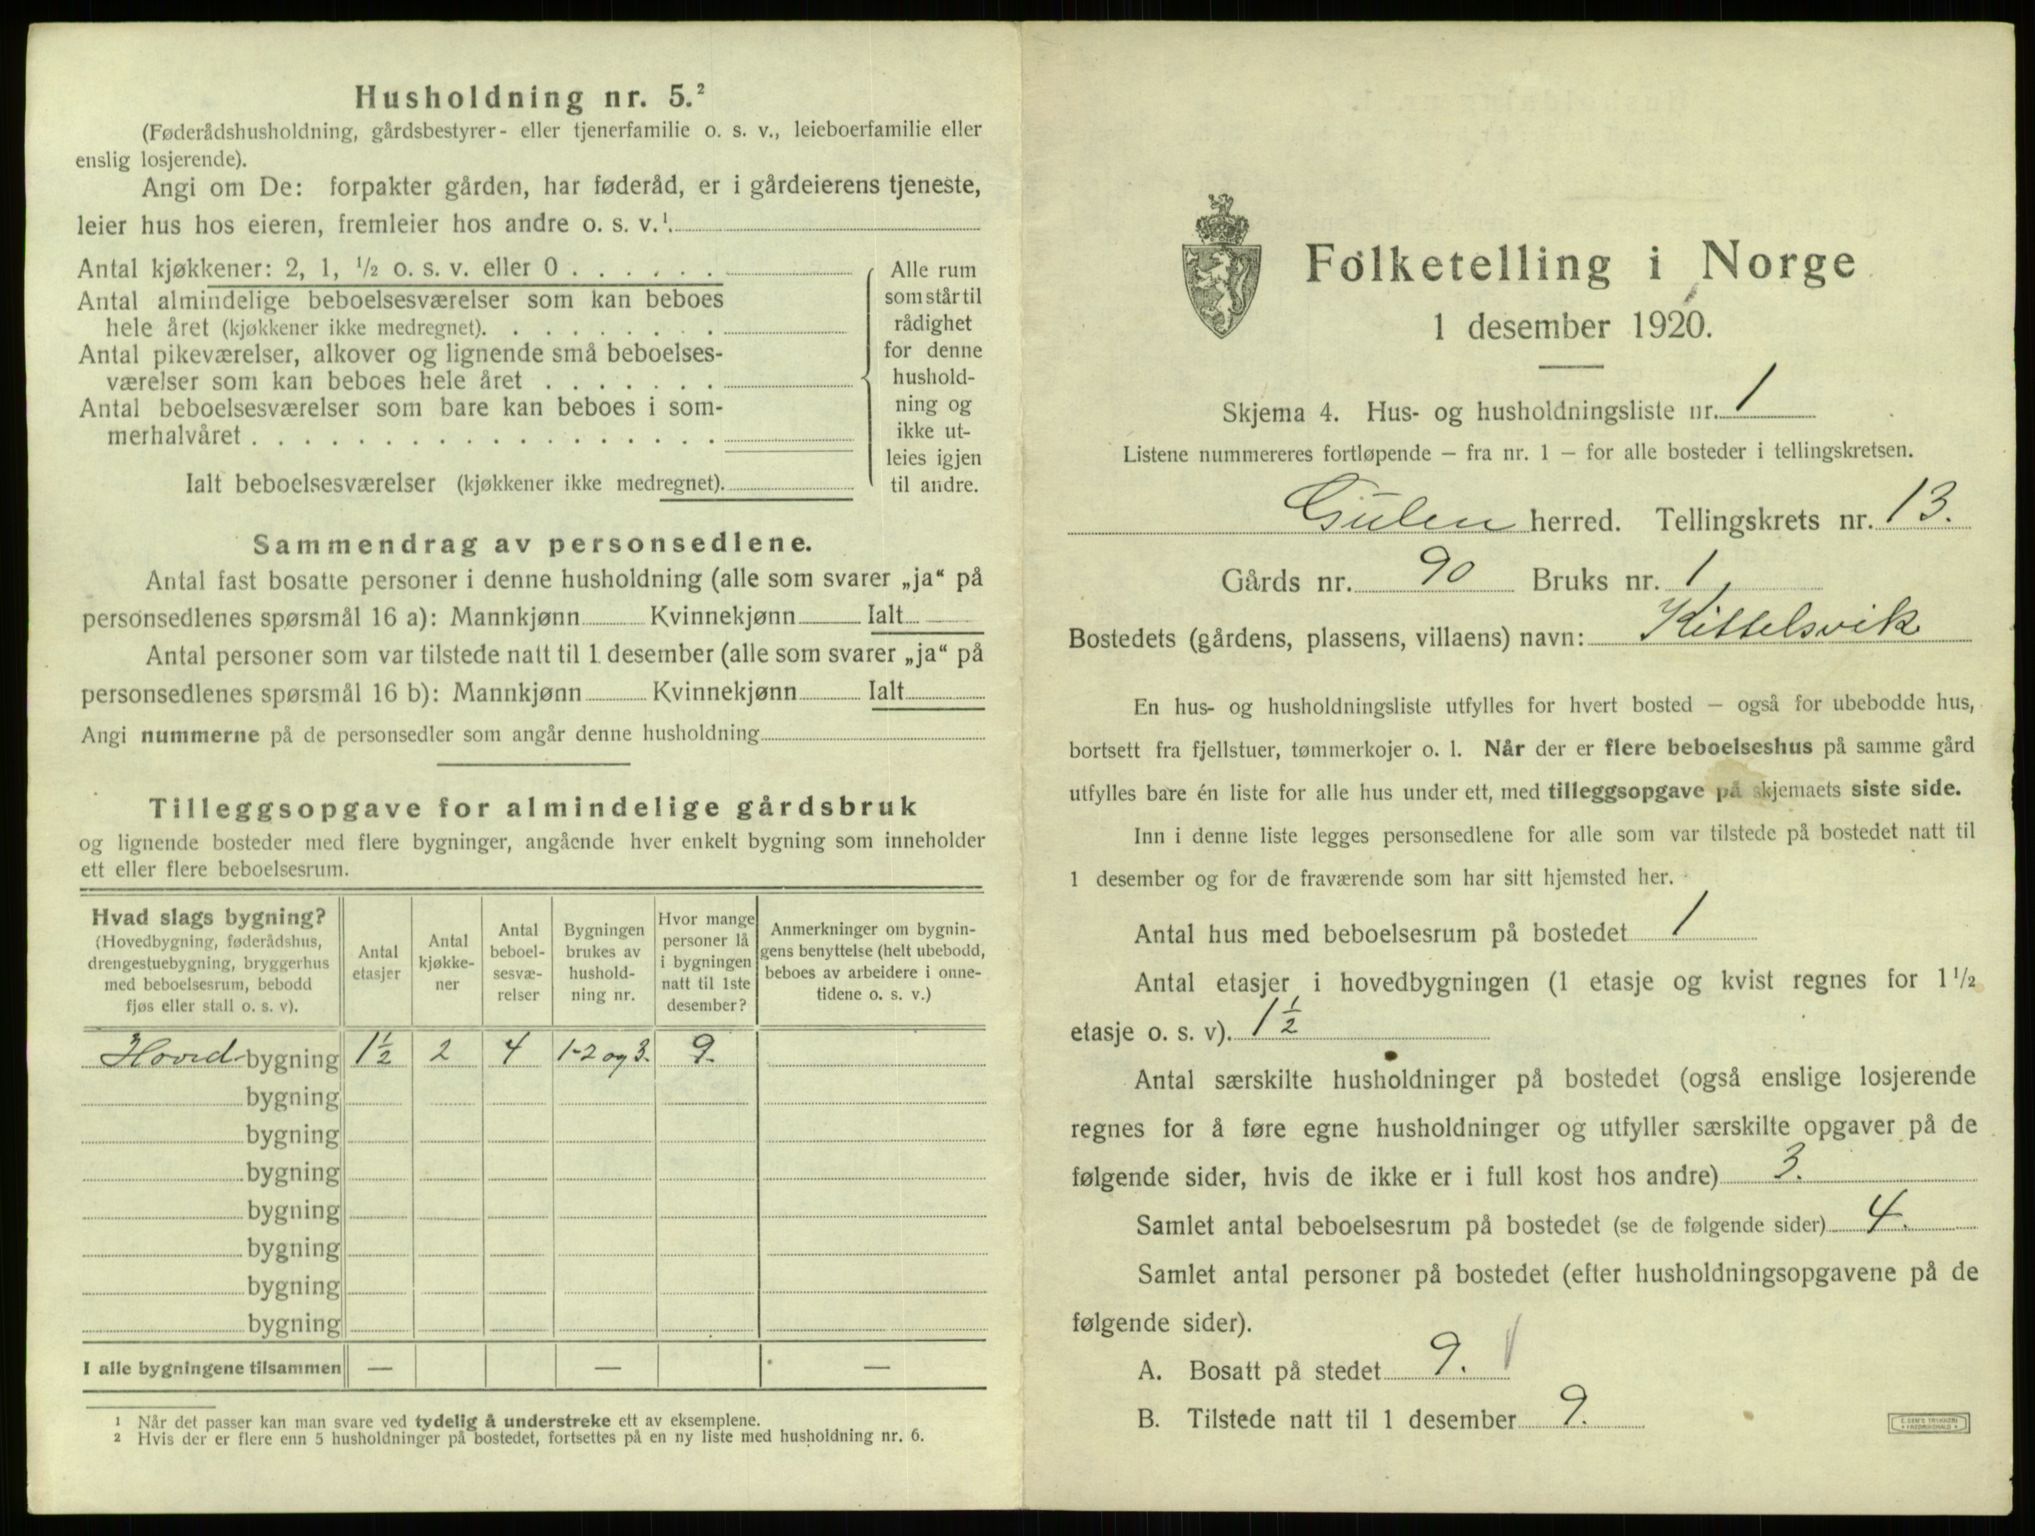 Husholdning nr. 5.²
(Føderådshusholdning, gårdsbestyrer- eller tjenerfamilie o. s. v., leieboerfamilie eller
enslig losjerende).
Angi om De: forpakter gården, har føderåd, er i gårdeierens tjeneste,
leier hus hos eieren, fremleier hos andre o. s. v.¹.
Antal kjøkkener: 2, 1, ½ o. s. v. eller 0
Antal almindelige beboelsesværelser som kan beboes
hele året (kjøkkener ikke medregnet).
Antal pikeværelser, alkover og lignende små beboelses-
værelser som kan beboes hele året
Antal beboelsesværelser som bare kan beboes i som-
merhalvåret
Ialt beboelsesværelser (kjøkkener ikke medregnet).
Alle rum
som står til
rådighet
for denne
hushold-
ning og
ikke ut-
leies igjen
til andre.
Sammendrag av personsedlene.
Antal fast bosatte personer i denne husholdning (alle som svarer „ja“ på
personsedlenes spørsmål 16 a): Mannkjønn Kvinnekjønn Ialt
Antal personer som var tilstede natt til 1. desember (alle som svarer „ja“ på
personsedlenes spørsmål 16 b): Mannkjønn Kvinnekjønn Ialt
Angi nummerne på de personsedler som angår denne husholdning
Tilleggsopgave for almindelige gårdsbruk
og lignende bosteder med flere bygninger, angående hver enkelt bygning som inneholder
ett eller flere beboelsesrum.
Hvad slags bygning?
(Hovedbygning, føderådshus,
drengestuebygning, bryggerhus
med beboelsesrum, bebodd
fjøs eller stall o. s. v).
Antal
etasjer
Antal
kjøkke-
ner
Antal
beboel-
sesvæ-
relser
Bygningen
brukes av
hushold-
ning nr.
Hvor mange
personer lå
i bygningen
natt til 1ste
desember?
Anmerkninger om bygnin-
gens benyttelse (helt ubebodd,
beboes av arbeidere i onne-
tidene o. s. v.)
Hovedbygning 1½ 2 4 1-2 og 3. 9.
bygning
bygning
bygning
bygning
bygning
bygning
bygning
I alle bygningene tilsammen — — —
¹ Når det passer kan man svare ved tydelig å understreke ett av eksemplene.
² Hvis der er flere enn 5 husholdninger på bostedet, fortsettes på en ny liste med husholdning nr. 6.
Folketelling i Norge
1 desember 1920.
Skjema 4. Hus- og husholdningsliste nr. 1
Listene nummereres fortløpende — fra nr. 1 — for alle bosteder i tellingskretsen.
Gulen herred. Tellingskrets nr. 13.
Gårds nr. 90 Bruks nr. 1,
Bostedets (gårdens, plassens, villaens) navn: Kittelsvik
En hus- og husholdningsliste utfylles for hvert bosted — også for ubebodde hus,
bortsett fra fjellstuer, tømmerkojer o. l. Når der er flere beboelseshus på samme gård
utfylles bare én liste for alle hus under ett, med tilleggsopgave på skjemaets siste side.
Inn i denne liste legges personsedlene for alle som var tilstede på bostedet natt til
1 desember og for de fraværende som har sitt hjemsted her.
Antal hus med beboelsesrum på bostedet 1
Antal etasjer i hovedbygningen (1 etasje og kvist regnes for 1½
etasje o. s. v). 1½
Antal særskilte husholdninger på bostedet (også enslige losjerende
regnes for å føre egne husholdninger og utfyller særskilte opgaver på de
følgende sider, hvis de ikke er i full kost hos andre) 3.
Samlet antal beboelsesrum på bostedet (se de følgende sider) 4.
Samlet antal personer på bostedet (efter husholdningsopgavene på de
følgende sider).
A. Bosatt på stedet 9.
B. Tilstede natt til 1 desember 9.